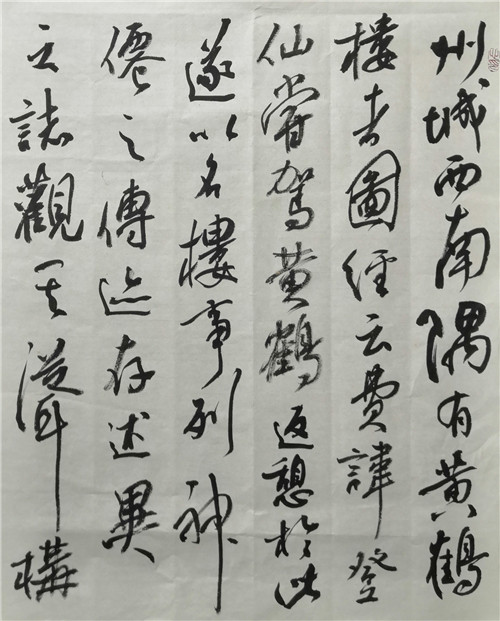 州城西南隅有黄鶴
樓者圖經云費諱登
仙嘗駕黄鶴返憩於此
遂以名樓事列神
僊之傳迹存述異
之誌觀其聳構